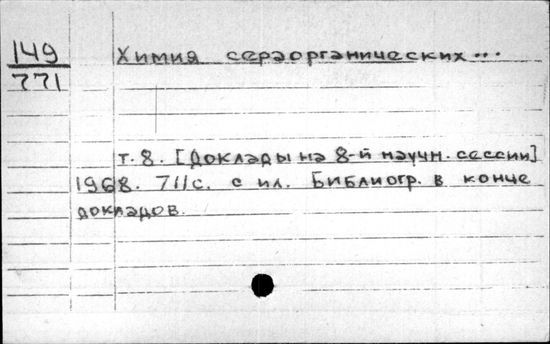 149
771
Химия сераорганических ...
т. 8. [Доклады на 8-й научн. сессии]
1968. 711с. с ил. Библиогр. в конце
докладов.